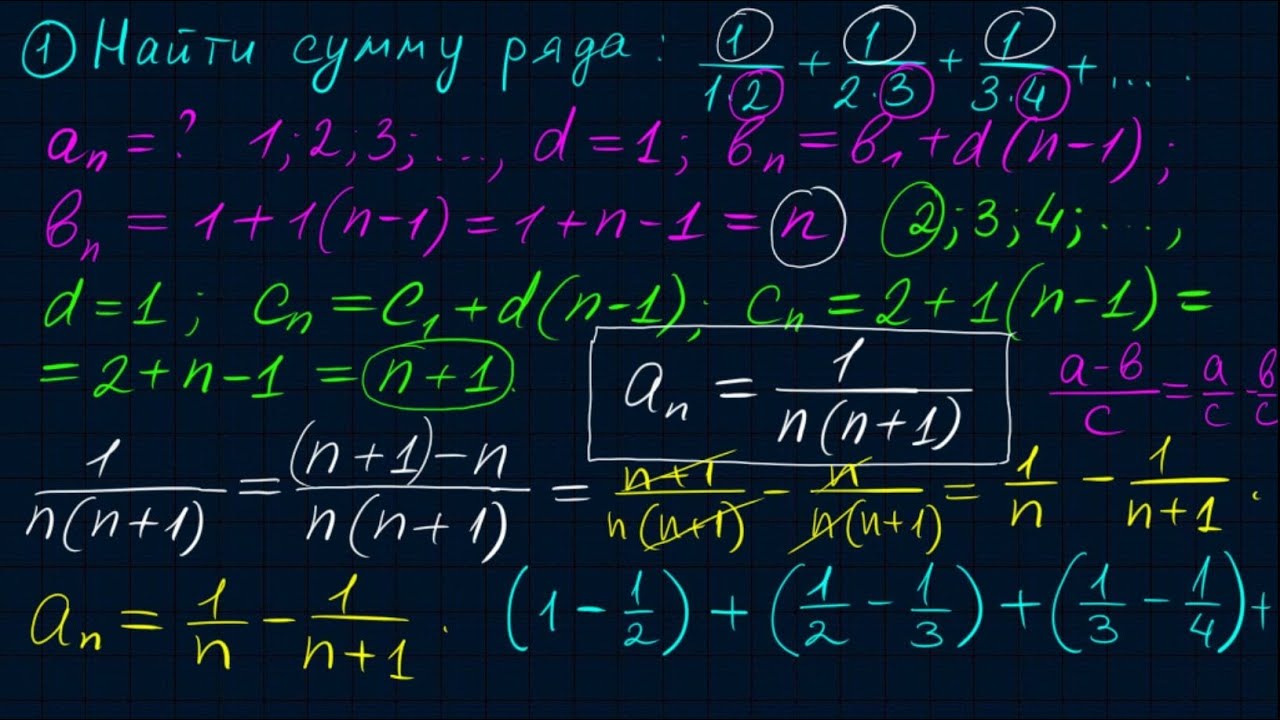 ① Найти сумму ряда: 1/(1·2) + 1/(2·3) + 1/(3·4) + ....
aₙ = ? 1; 2; 3; ..., d = 1; вₙ = в₁ + d(n-1);
вₙ = 1 + 1(n-1) = 1 + n - 1 = n 2; 3; 4; ...,
d = 1; Cₙ = C₁ + d(n-1); Cₙ = 2 + 1(n-1) =
= 2 + n - 1 = n + 1. aₙ = 1/(n(n+1)) (a-в)/c = a/c - в/c
1/(n(n+1)) = ((n+1)-n)/(n(n+1)) = (n+1)/(n(n+1)) - n/(n(n+1)) = 1/n - 1/(n+1).
aₙ = 1/n - 1/(n+1). (1 - 1/2) + (1/2 - 1/3) + (1/3 - 1/4) +